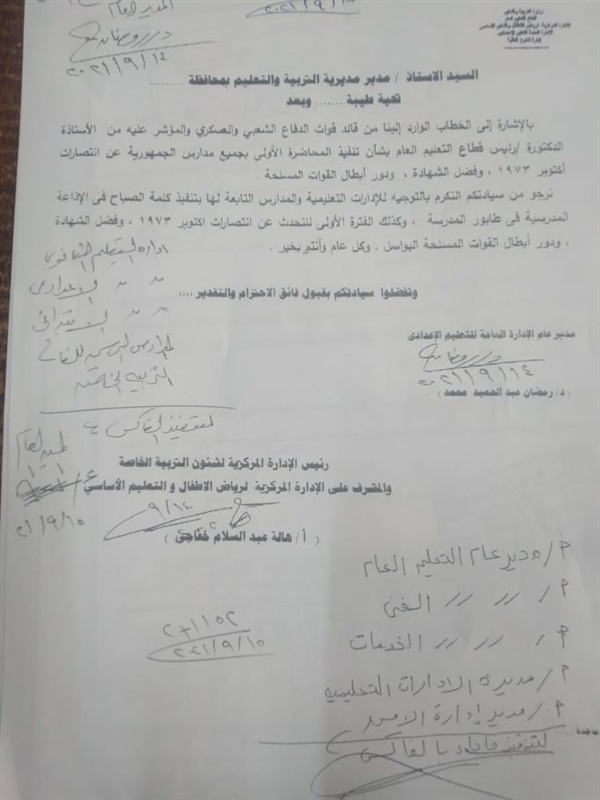 وزارة التربية والتعليم
المدير العام
٢٠٢١/٩/١٤
السيد الاستاذ / مدير مديرية التربية والتعليم بمحافظة ........
تحية طيبة ....... وبعد
بالإشارة إلى الخطاب الوارد إلينا من قائد قوات الدفاع الشعبي والعسكري والمؤشر عليه من الأستاذة
الدكتورة /رئيس قطاع التعليم العام بشأن تنفيذ المحاضرة الأولى بجميع مدارس الجمهورية عن انتصارات
أكتوبر ١٩٧٣ ، وفضل الشهادة ، ودور أبطال القوات المسلحة .
نرجو من سيادتكم التكرم بالتوجيه للإدارات التعليمية والمدارس التابعة لها بتنفيذ كلمة الصباح فى الإذاعة
المدرسية فى طابور المدرسة ، وكذلك الفترة الأولى للتحدث عن انتصارات اكتوبر ١٩٧٣ ، وفضل الشهادة
، ودور أبطال القوات المسلحة البواسل . وكل عام وأنتم بخير .
وتفضلوا سيادتكم بقبول فائق الاحترام والتقدير ....
مدير عام الإدارة العامة للتعليم الإعدادى
٢٠٢١/٩/١٤
( د/ رمضان عبد الحميد محمد )
ادارة التعليم الثانوى
〃 〃 الاعدادى
〃 〃 الابتدائى
المدارس الرسمية للغات
التربية الخاصة
لتنفيذ الفاكس
رئيس الإدارة المركزية لشئون التربية الخاصة
والمشرف على الإدارة المركزية لرياض الاطفال و التعليم الأساسي
٩/١٤
( أ/ هالة عبد السلام خفاجى )
٩/١٥
م/ مدير عام التعليم العام
م/ 〃 〃 الفنى
م/ 〃 〃 الخدمات
م/ مديرى الادارات التعليمية
م/ مدير إدارة الامن
لتنفيذ ما جاء بالفاكس
٢٠٢١/٩/١٥
ماجدة